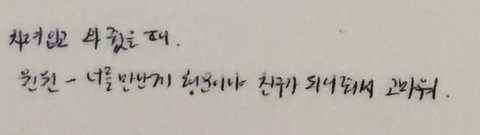 차려입고 와 줬을 해.
핀핀 - 너를 만난게 행운이야 친구가 되어줘서 고마워.